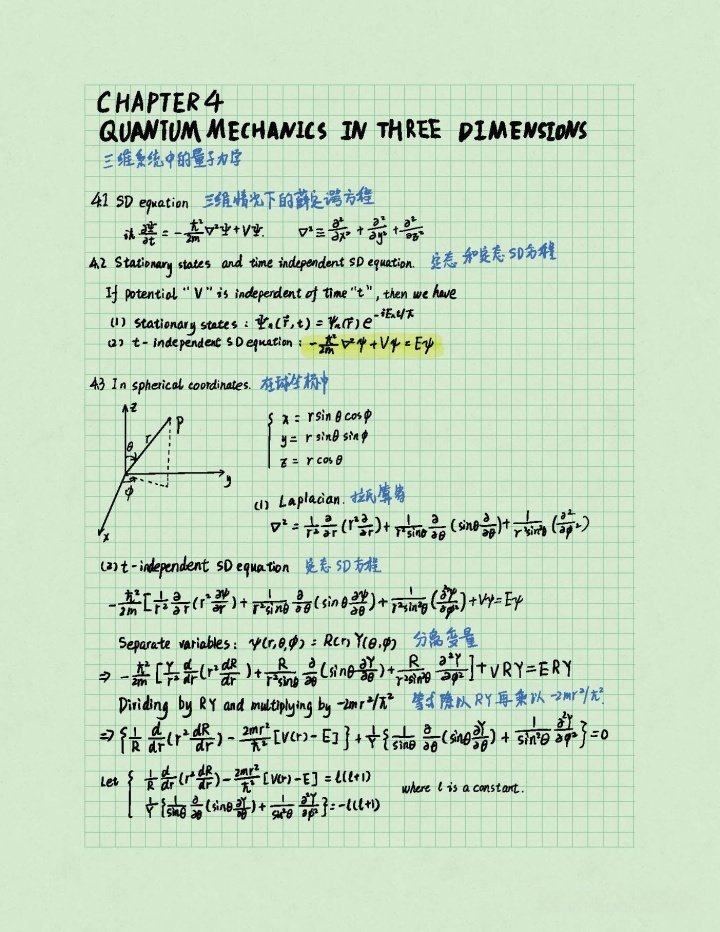 CHAPTER 4
QUANTUM MECHANICS IN THREE DIMENSIONS
三维系统中的量子力学
4.1 SD equation 三维情况下的薛定谔方程
iℏ ∂Ψ/∂t = -ℏ²/2m ∇²Ψ + VΨ. ∇² ≡ ∂²/∂x² + ∂²/∂y² + ∂²/∂z²
4.2 Stationary states and time independent SD equation. 定态和定态SD方程
If potential "V" is independent of time "t", then we have
(1) Stationary states : Ψₙ(r⃗,t) = ψₙ(r⃗) e^(-iEₙt/ℏ)
(2) t-independent SD equation : -ℏ²/2m ∇²ψ + Vψ = Eψ
4.3 In spherical coordinates. 在球坐标中
z
P
r
θ
y
φ
x
{ x = r sin θ cos φ
y = r sin θ sin φ
z = r cos θ
(1) Laplacian. 拉氏算符
∇² = 1/r² ∂/∂r (r² ∂/∂r) + 1/r²sinθ ∂/∂θ (sinθ ∂/∂θ) + 1/r²sin²θ (∂²/∂φ²)
(2) t-independent SD equation 定态SD方程
-ℏ²/2m [1/r² ∂/∂r (r² ∂ψ/∂r) + 1/r²sinθ ∂/∂θ (sin θ ∂ψ/∂θ) + 1/r²sin²θ (∂²ψ/∂φ²)] + Vψ = Eψ
Separate variables: ψ(r,θ,φ) = R(r) Y(θ,φ) 分离变量
⇒ -ℏ²/2m [Y/r² d/dr (r² dR/dr) + R/r²sinθ ∂/∂θ (sinθ ∂Y/∂θ) + R/r²sin²θ ∂²Y/∂φ²] + VRY = ERY
Dividing by RY and multiplying by -2mr²/ℏ² 等式除以RY再乘以 -2mr²/ℏ².
⇒ {1/R d/dr (r² dR/dr) - 2mr²/ℏ² [V(r) - E]} + 1/Y {1/sinθ ∂/∂θ (sinθ ∂Y/∂θ) + 1/sin²θ ∂²Y/∂φ²} = 0
Let { 1/R d/dr (r² dR/dr) - 2mr²/ℏ² [V(r) - E] = l(l+1)
1/Y {1/sinθ ∂/∂θ (sinθ ∂Y/∂θ) + 1/sin²θ ∂²Y/∂φ²} = -l(l+1)
where l is a constant.